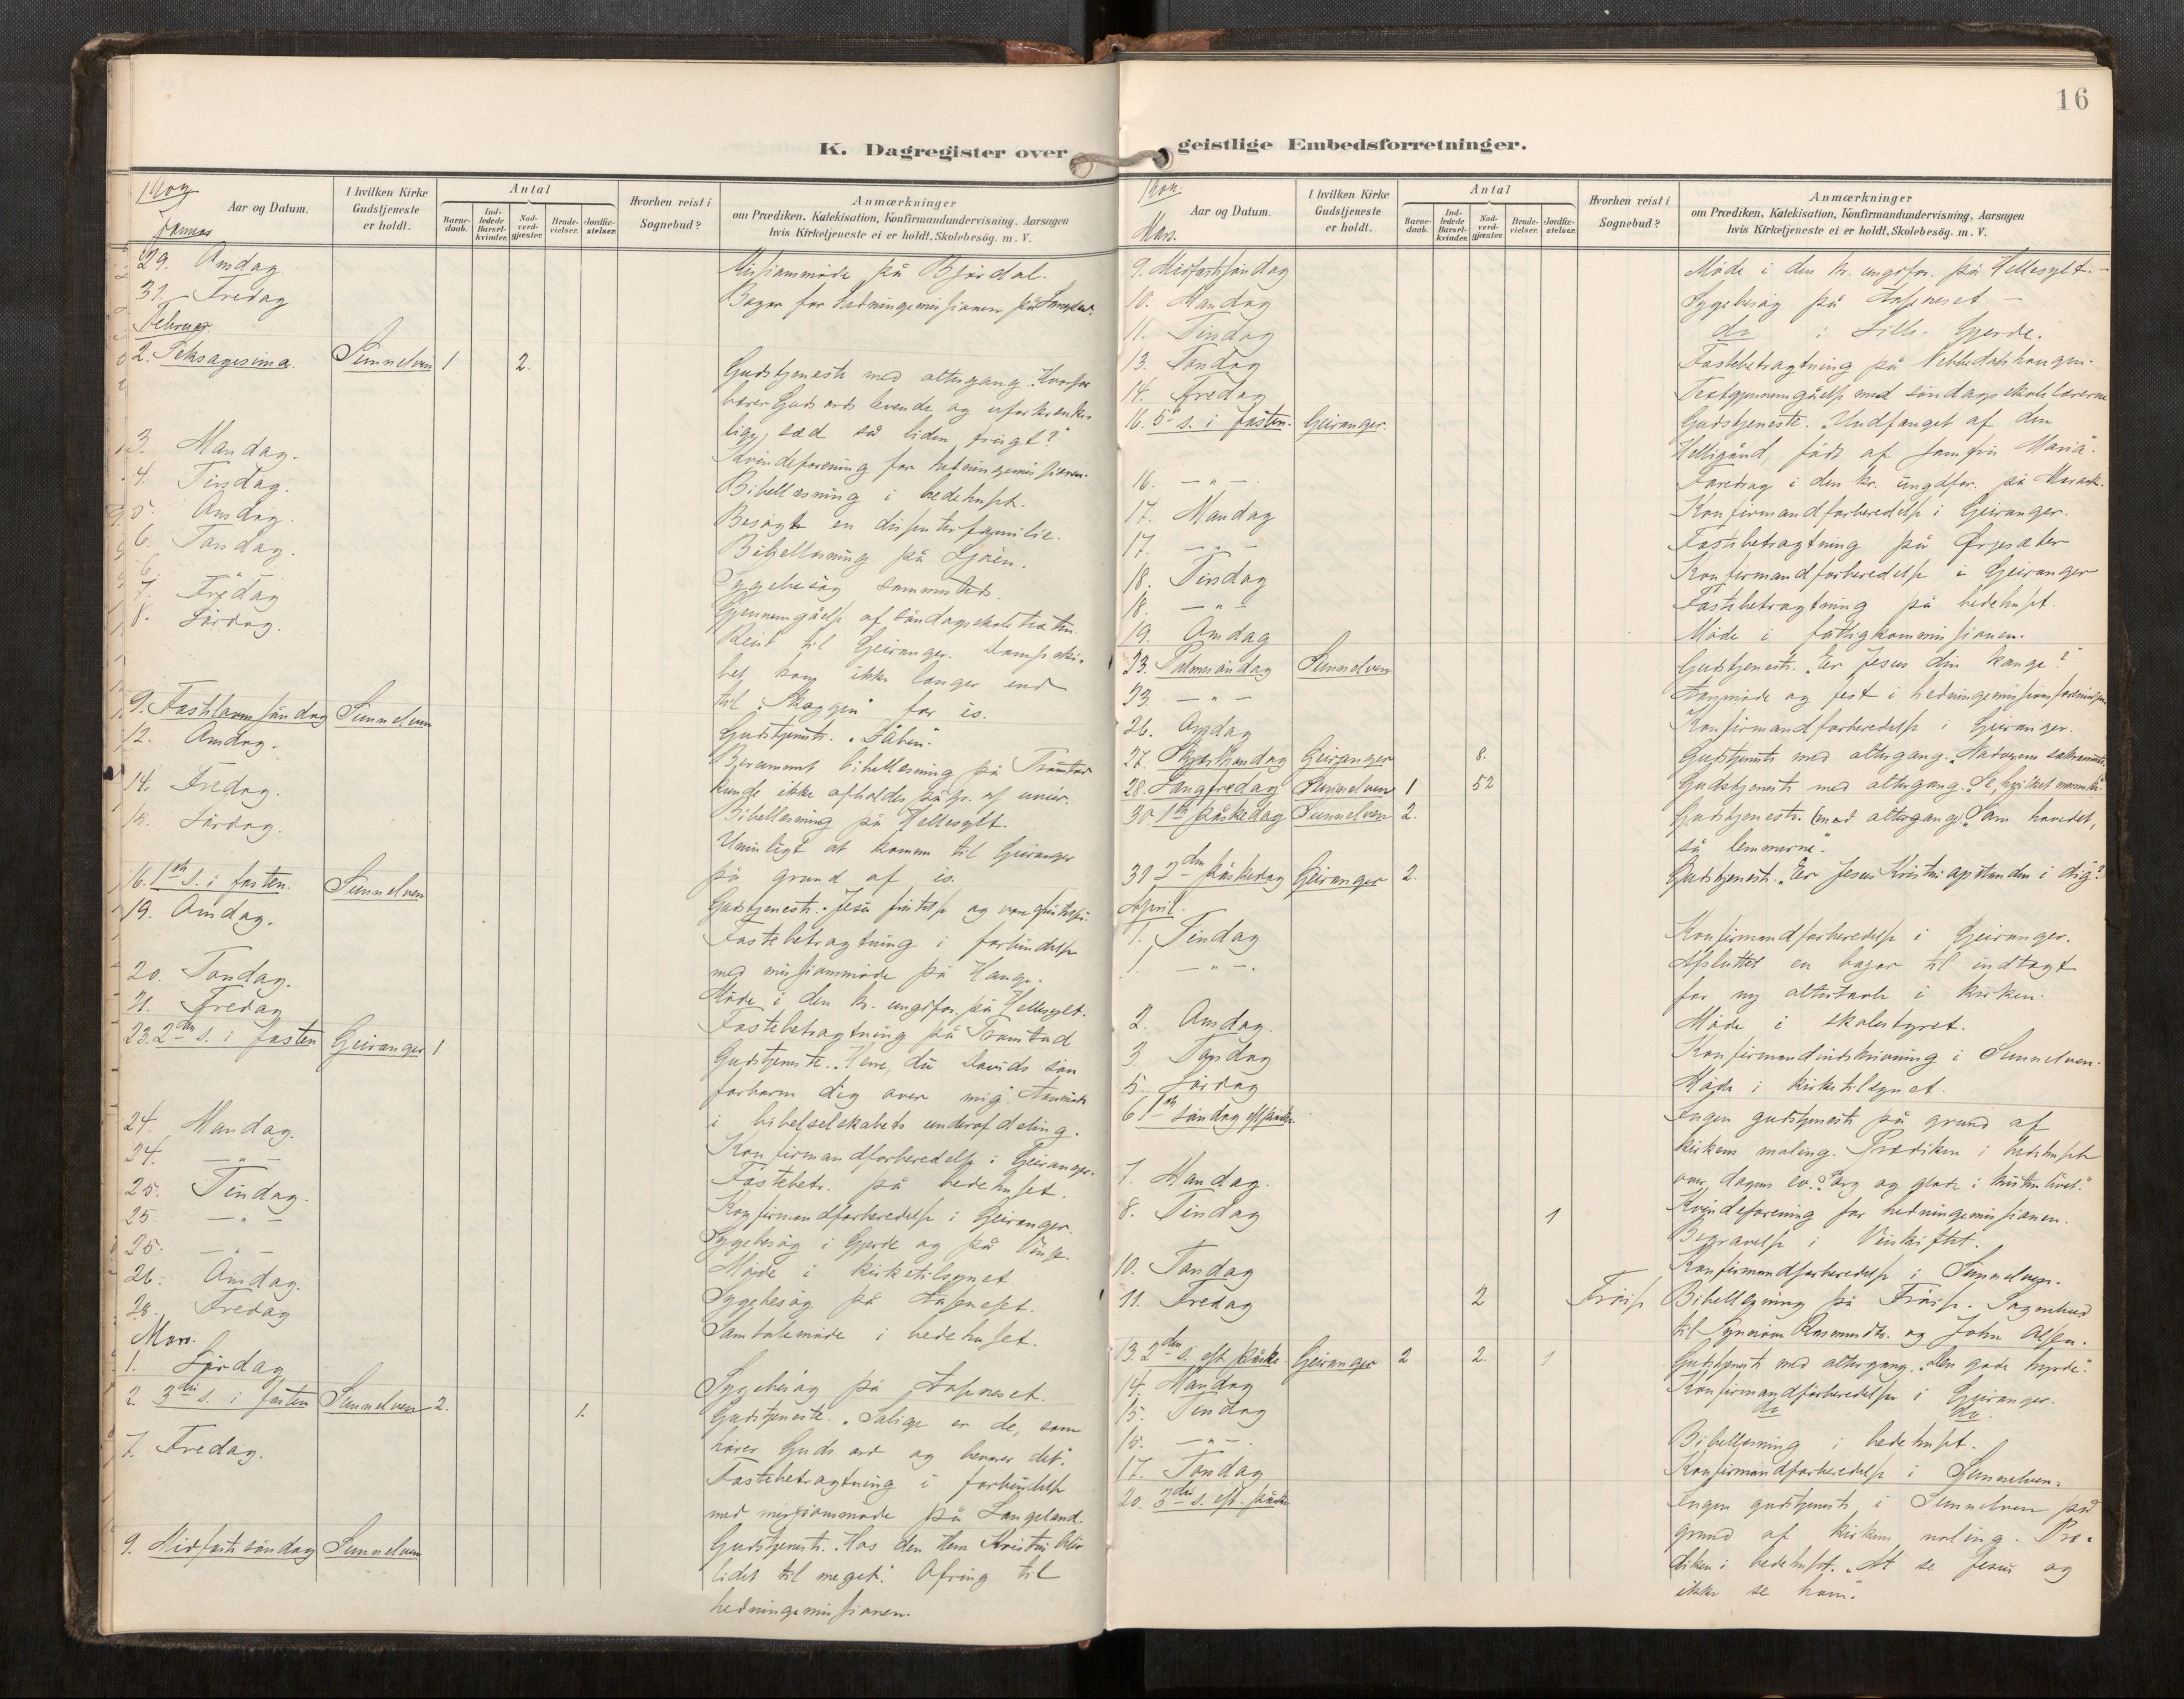 K. Dagregister over
Aar og Datum.
I hvilken Kirke Gudstjeneste er holdt.
Antal
Barne-daab.
Ind-ledede Barsel-kvinder.
Nad-verd-gjæster.
Brude-vielser.
Jordfæ-stelser.
Hvorhen reist i Sognebud?
Anmærkninger
om Prædiken, Katekisation, Konfirmandundervisning, Aarsagen
hvis Kirketjeneste ei er holdt, Skolebesög. m. V.
29. Onsdag Missionsmöde på Bjørdal.
31. Fredag Bazar for hedningemissionen på
Februar
2. Seksagesima Sunnelven 1 2. Gudstjeneste med altergang. "Hvorfor
bærer Guds ords levende og uforkrænke-
lige sæd så liden frugt?"
3. Mandag. Kvindeforening for hedningemissionen.
4. Tirsdag. Bibellæsning i bedehuset.
5. Onsdag. Besøgte en dissenterfamilie.
6. Torsdag. Bibellæsning på Ljøen.
6. " Sygebesøg sammesteds.
7. Fredag Gjennemgåelse af söndagsskoletexten.
8. Lördag. Reist til Geiranger. Dampski-
bet kom ikke længer end
til "Skaggen" for is.
9. Fastelavnssöndag Sunnelven Gudstjeneste. "Dåben".
12. Onsdag. Berammet bibellæsning på Tronstad
kunde ikke afholdes på gr. af uveir.
14. Fredag. Bibellæsning på Hellesylt.
15. Lördag. Umuligt at komme til Geiranger
på grund af is.
16. 1ste s. i fasten. Sunnelven Gudstjeneste. "Jesu fristelse og vore fristelser."
19. Onsdag. Fastebetragtning i forbindelse
med missionsmöde på Hauge.
20. Torsdag. Möde i den kr. ungdfor. på Hellesylt.
21. Fredag Fastebetragtning på Tronstad
23. 2den s. i fasten Geiranger 1 Gudstjeneste. "Herre, du Davids sön
forbarm dig over mig". Aarsmöde
i bibelselskabets underafdeling.
24. Mandag. Konfirmandforberedelse i Geiranger.
24. — " — Fastebetr. på bedehuset.
25. Tirsdag. Konfirmandforberedelse i Geiranger.
25. — " — Sygebesøg i Gjerde og på Vinje.
25. — " — Möde i kirketilsynet.
26. Onsdag. Sygebesøg på
28. Fredag Samtalemöde i bedehuset.
Mars.
1. Lördag Sygebesøg på
2. 3die s. i fasten Sunnelven 2. 1. Gudstjeneste. "Salige er de, som
hører Guds ord og bevarer det".
7. Fredag. Fastebetragtning i forbindelse
med missionsmöde på Langeland.
9. Midfastesöndag Sunnelven Gudstjeneste. "Hos den Herre Kristus blir
lidet til meget". Ofring til
hedningemissionen.
16
geistlige Embedsforretninger.
Mars.
Aar og Datum.
I hvilken Kirke Gudstjeneste er holdt.
Antal
Barne-daab.
Ind-ledede Barsel-kvinder.
Nad-verd-gjæster.
Brude-vielser.
Jordfæ-stelser.
Hvorhen reist i Sognebud?
Anmærkninger
om Prædiken, Katekisation, Konfirmandundervisning, Aarsagen
hvis Kirketjeneste ei er holdt, Skolebesög. m. V.
9. Midfastesöndag Möde i den kr. ungdfor. på Hellesylt. —
10. Mandag Sygebesøg på
11. Tirsdag do i Lille-Gjerde.
13. Torsdag Fastebetragtning på
14. Fredag Textgjennemgåelse med söndagsskolelærerne
16. 5te s. i fasten. Geiranger. Gudstjeneste. "Undfanget af den
Helligånd, født af jomfru Maria".
16. — " —. Foredrag i den kr. ungdfor. på Maraak.
17. Mandag Konfirmandforberedelse i Geiranger.
17. — " — Fastebetragtning på Ørjesæter
18. Tirsdag Konfirmandforberedelse i Geiranger
18. — " — Fastebetragtning på bedehuset.
19. Onsdag Möde i fattigkommissionen.
23. Palmesöndag Sunnelven Gudstjeneste. "Er Jesus din konge?"
23. — " — Aarsmöde og fest i hedningemissionsforeningen.
26. Onsdag Konfirmandforberedelse i Geiranger.
27. Skjærtorsdag Geiranger 8. Gudstjeneste med altergang. "Nadverens sakramente".
28. Langfredag Sunnelven 1 52 Gudstjeneste med altergang. "Se, hvilket menneske".
30. 1ste påskedag Sunnelven 2. Gudstjeneste. (med altergang). "Som hovedet,
så lemmerne".
31 2den påskedag Geiranger 2. Gudstjeneste. "Er Jesus Kristus opstanden i dig?"
April.
1. Tirsdag Konfirmandforberedelse i Geiranger.
1. — " —. Afsluttet en bazar til indtægt
for ny altertavle i kirken.
2. Onsdag. Möde i skolestyret.
3. Torsdag Konfirmandindskrivning i Sunnelven.
5. Lördag Möde i kirketilsynet.
6. 1ste söndag eft. påske. Ingen gudstjeneste på grund af
kirkens maling. Prædiken i bedehuset
over dagens ev. "Sorg og glæde i kristenlivet."
7. Mandag. Kvindeforening for hedningemissionen.
8. Tirsdag 1 Begravelse i
10. Torsdag Konfirmandforberedelse i Sunnelven.
11. Fredag 2 Bibellæsning på Sognebud
til Rasmusdtr. og John Olsen.
13. 2den s. eft. påske Geiranger 2 2. 1 Gudstjeneste med altergang. "Den gode hyrde".
14. Mandag Konfirmandforberedelse i Geiranger.
15. Tirsdag do do.
15. — " —. Bibellæsning i bedehuset.
17. Torsdag Konfirmandforberedelse i Sunnelven.
20. 3die s. eft. påske Ingen gudstjeneste i Sunnelven på
grund af kirkens maling. Præ-
diken i bedehuset. "At se Jesus og
ikke se ham".